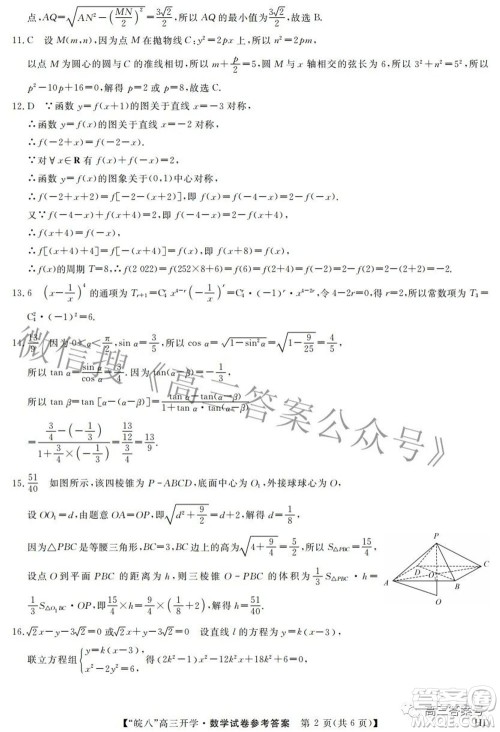 点,AQ=√(AN²-(MN/2)²)=3√2/2,所以 AQ 的最小值为 3√2/2,故选 B.
11.C 设 M(m,n),因为点 M 在抛物线 C:y²=2px 上,所以 n²=2pm,
以点 M 为圆心的圆与 C 的准线相切,所以 m+p/2=5,圆 M 与 x 轴相交的弦长为 6,所以 3²+n²=5²,所以
p²-10p+16=0,解得 p=2 或 p=8,故选 C.
12.D ∵函数 y=f(x+1)的图关于直线 x=-3 对称,
∴函数 y=f(x)的图关于直线 x=-2 对称,
∴f(-2+x)=f(-2-x).
∵对∀x∈R 有 f(x)+f(-x)=2,
∴函数 y=f(x)的图象关于(0,1)中心对称,
∴f(-2+x+2)=f[-2-(x+2)],即 f(x)=f(-4-x).
又∵f(-4-x)+f(x+4)=2,即 f(x)+f(x+4)=2.
∴f(x+4)+f[(x+4)+4]=2,即 f(x+4)+f(x+8)=2.
∴f(x)=f(x+8)
∴f(x)的周期 T=8,∴f(2 022)=f(252×8+6)=f(6)=f(-2)=2-f(2)=2-2=-2.
13.6 (x-1/x)⁴的通项为 T_{r+1}=C₄ʳx^{4-r}(-1/x)ʳ=C₄ʳ·(-1)ʳ·x^{4-2r},令 4-2r=0,得 r=2,所以常数项为 T₃=
C₄²·(-1)²=6.
14.13/9 因为 0<α<π/2,sin α=3/5,所以 cos α=√(1-sin²α)=√(1-9/25)=4/5,
所以 tan α=sin α/cos α=3/4.因为 tan(α-β)=-1/3,
所以 tan β=tan[α-(α-β)]=(tan α-tan(α-β))/(1+tan α·tan(α-β))
=(3/4-(-1/3))/(1+3/4×(-1/3))=(13/12)/(3/4)=13/9.
15.51/40 如图所示,该四棱锥为 P-ABCD,底面中心为 O₁,外接球球心为 O,
设 OO₁=d,由题意 OA=OP,即√(d²+9/2)=d+2,解得 d=1/8,
因为△PBC 是等腰三角形,BC 边上的高为√(4+9/4)=5/2,所以 S△PBC=15/4,
设点 O 到平面 PBC 的距离为 h,则三棱锥 O-PBC 的体积为 1/3 S△PBC·h=
1/3 S△O₁BC·OP,即 15/4×h=9/4×(1/8+2),解得 h=51/40.
P
D
C
O₁
A
B
O
16.√2x-y-3√2=0 或√2x+y-3√2=0 设直线 l 的方程为 y=k(x-3),
联立方程组{y=k(x-3), x²-2y²=6,
【“皖八”高三开学·数学试卷参考答案 第 2 页(共 6 页)】
微信搜《高三答案公众号》
高三答案号